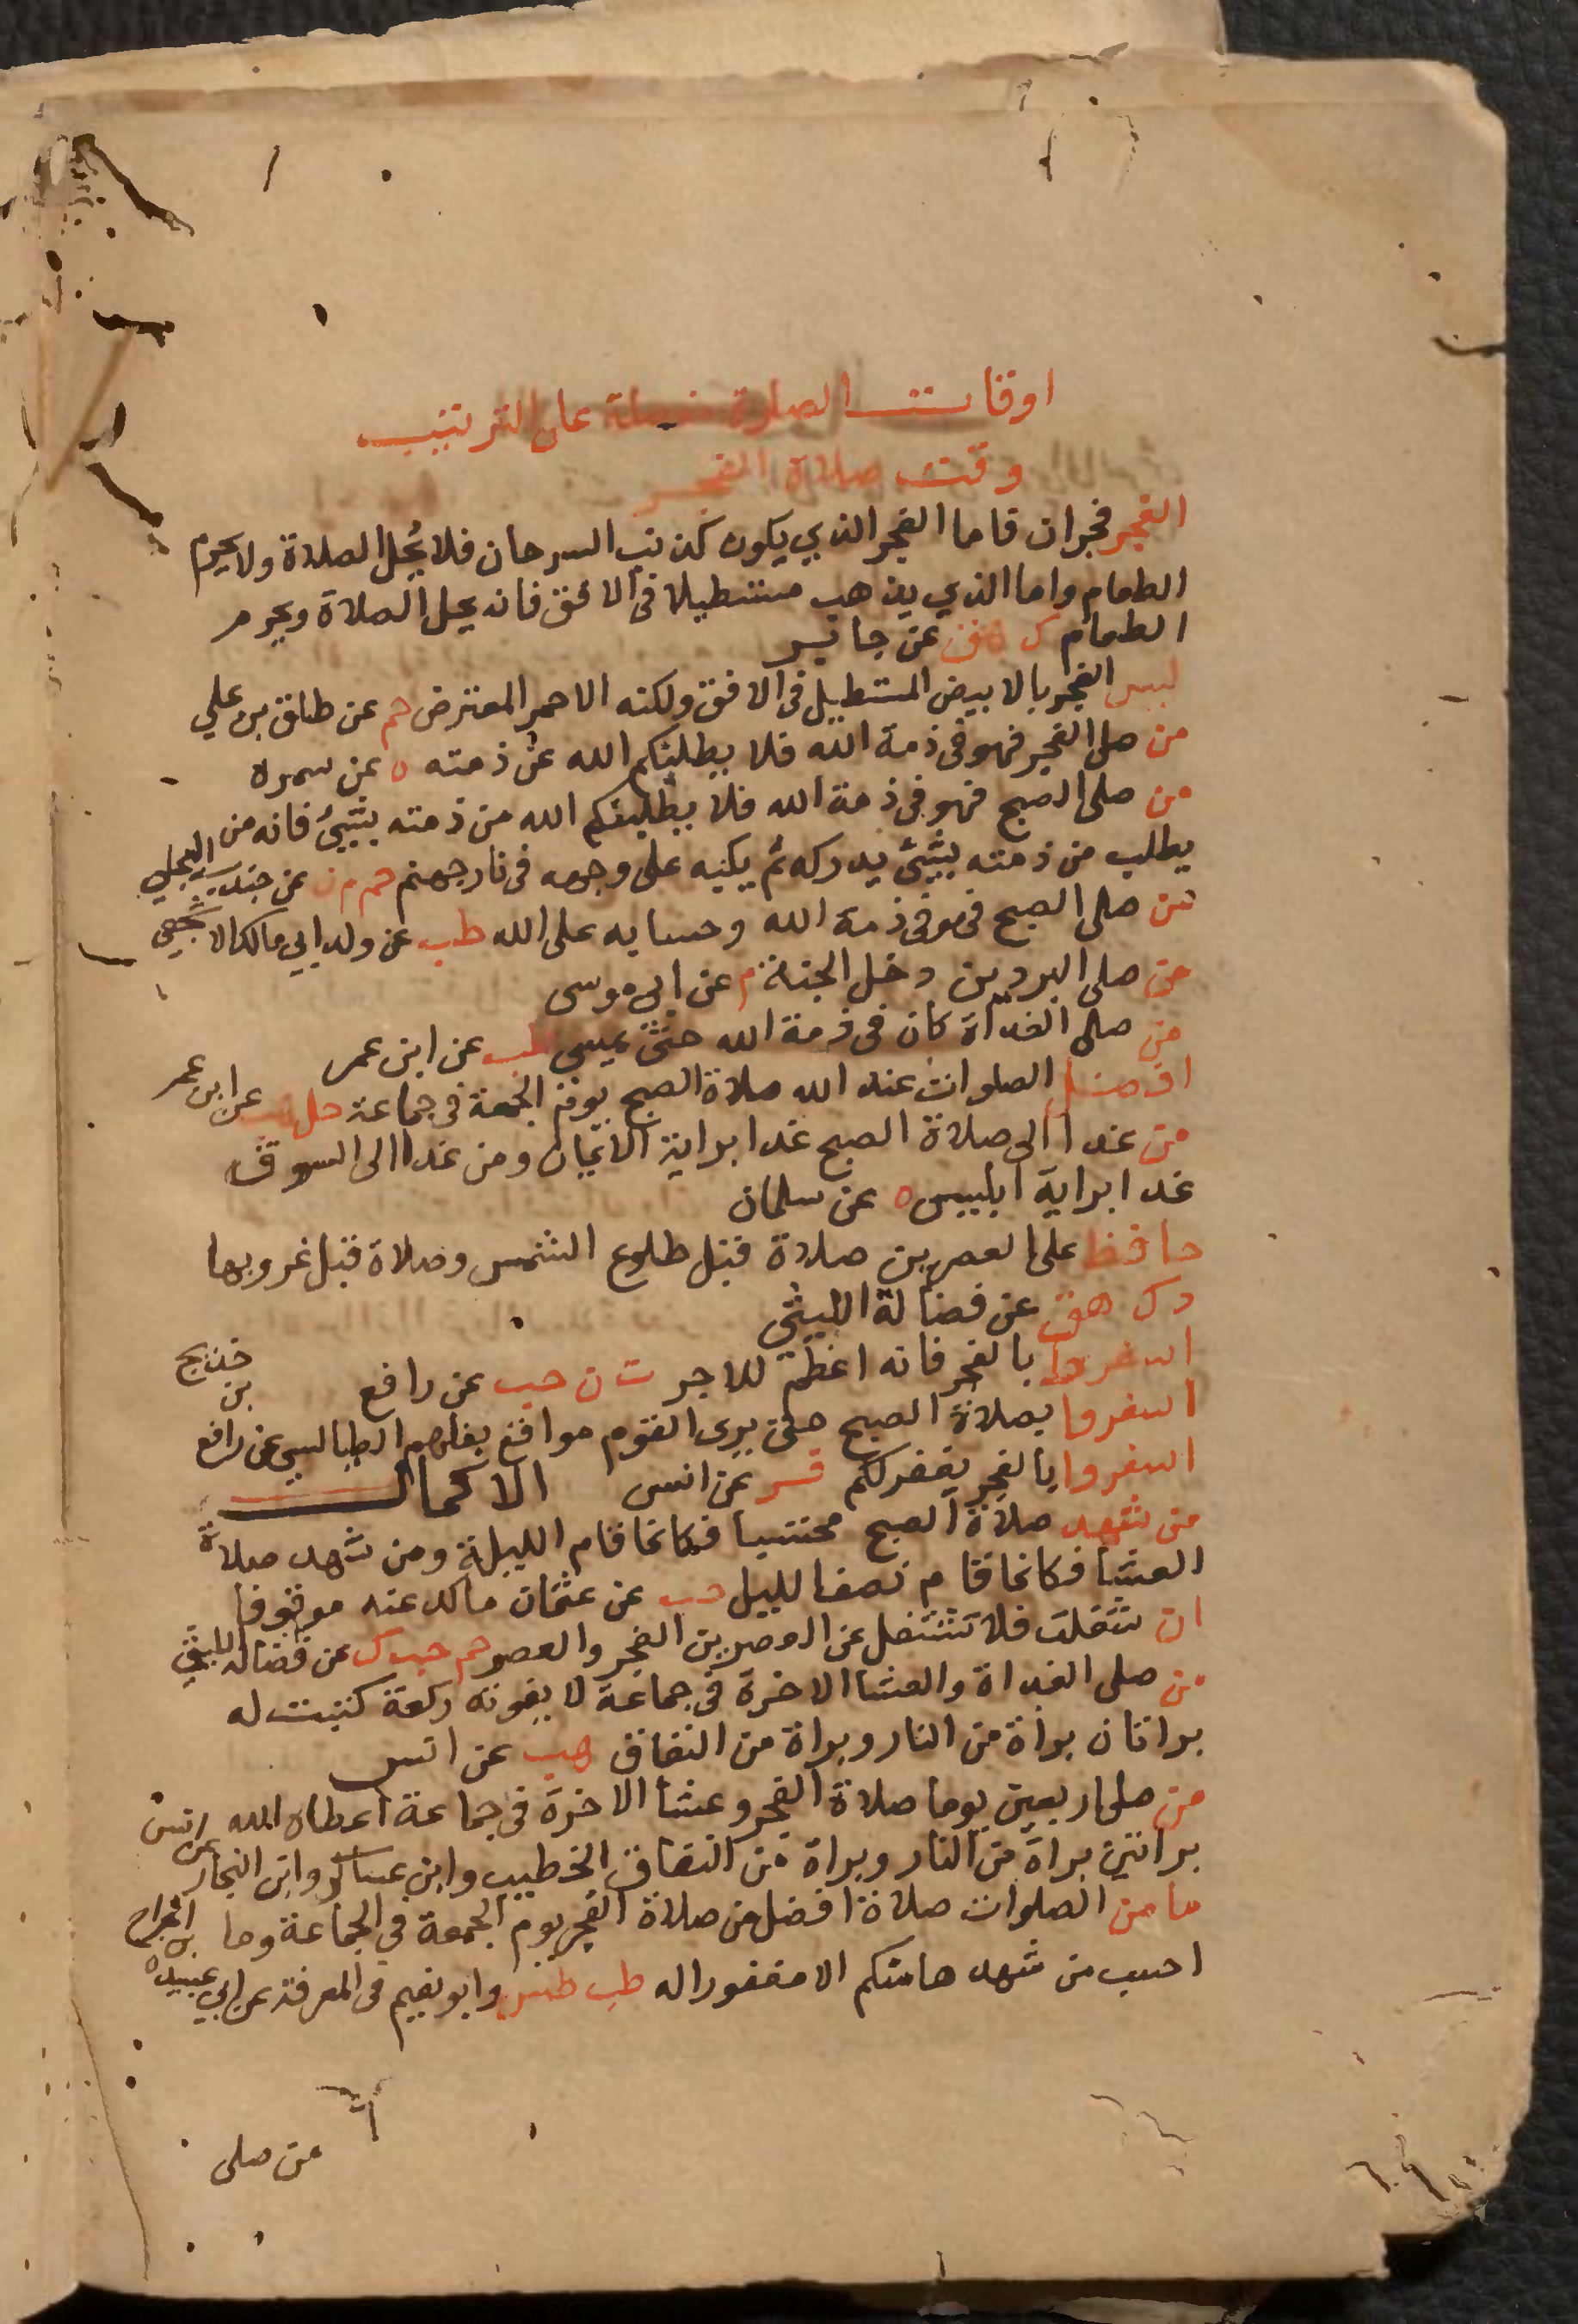 اوقات الصلاة مفصلة على الترتيب
وقت صلاة الفجر
الفجر فجران فاما الفجر الذي يكون كذنب السرحان فلا يحل الصلاة ولا يحرم
الطعام واما الذي يذهب مستطيلا في الافق فانه يحل الصلاة ويحرم
الطعام ك هق عن جابر
ليس الفجر بالابيض المستطيل في الافق ولكنه الاحمر المعترض حم عن طلق بن علي
من صلى الفجر فهو في ذمة الله فلا يطلبنكم الله عن ذمته ه عن سمره
من صلى الصبح فهو في ذمة الله فلا يطلبنكم الله من ذمته بشيئ فانه من
يطلب من ذمته بشيئ يدركه ثم يكبه على وجهه في نار جهنم حم م ت عن جندب البجلي
من صلى الصبح فهو في ذمة الله وحسابه على الله طب عن والد ابي مالك الاشجعي
من صلى البردين دخل الجنة م عن ابي موسى
من صلى الغداة كان في ذمة الله حتى يمسي طب عن ابن عمر
افضل الصلوات عند الله صلاة الصبح يوم الجمعة في جماعة حل هب عن ابن عمر
من غدا الى صلاة الصبح غدا براية الايمان ومن غدا الى السوق
غدا براية ابليس ه عن سلمان
حافظ على العصرين صلاة قبل طلوع الشمس وصلاة قبل غروبها
د ك هق عن فضالة الليثي
اسفروا بالفجر فانه اعظم للاجر ت ن حب عن رافع بن خديج
اسفروا بصلاة الصبح حتى يرى القوم مواقع نبلهم الطيالسي عن رافع
اسفروا بالفجر يغفر لكم فر عن انس الاكمال
من شهد صلاة الصبح محتسبا فكانما قام الليلة ومن شهد صلاة
العشا فكانما قام نصف الليل حب عن عثمان مالك عنه موقوفا
ان شغلت فلا تشتغل عن العصرين الفجر والعصر حم حب ك عن فضالة الليثي
من صلى الغداة والعشا الاخرة في جماعة لا يفوته ركعة كتبت له
براتان براة من النار وبراة من النفاق هب عن انس
من صلى اربعين يوما صلاة الفجر وعشا الاخرة في جماعة اعطاه الله
براتين براة من النار وبراة من النفاق الخطيب وابن عساكر وابن النجار عن انس
ما من الصلوات صلاة افضل من صلاة الفجر يوم الجمعة في الجماعة وما
احسب من شهدها منكم الا مغفورا له طب طس وابو نعيم في المعرفة عن ابي عبيدة بن الجراح
من صلى